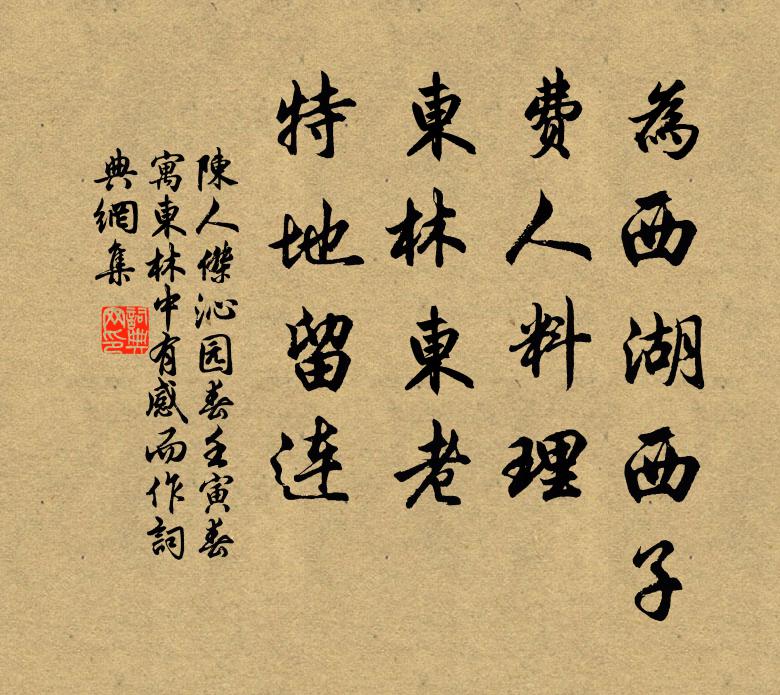 為西湖西子
費人料理
東林東老
特地留连
陳人傑沁园春壬寅春
寓東林中有感而作詞
典網集
詞典网印